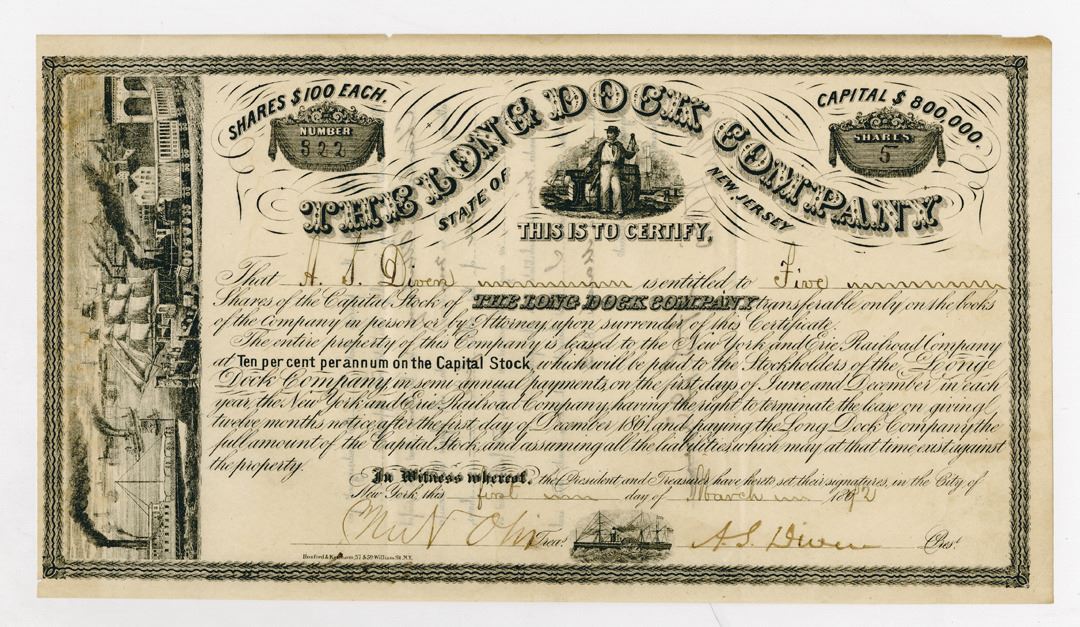 SHARES $100 EACH.
THE LONG DOCK COMPANY
CAPITAL $ 800,000.
NUMBER
522
SHARES
5
STATE OF
NEW JERSEY
THIS IS TO CERTIFY,
That A. S. Diven is entitled to Five
Shares of the Capital Stock of THE LONG DOCK COMPANY transferable only on the books
of the Company in person or by Attorney upon surrender of this Certificate.
The entire property of this Company is leased to the New York and Erie Railroad Company
at Ten per cent per annum on the Capital Stock, which will be paid to the Stockholders of the Long
Dock Company, in semi annual payments, on the first days of June and December in each
year, the New York and Erie Railroad Company, having the right to terminate the lease on giving
twelve months notice, after the first day of December 1861, and paying the Long Dock Company the
full amount of the Capital Stock, and assuming all the liabilities which may at that time exist against
the property.
In Witness whereof, the President and Treasurer have hereto set their signatures, in the City of
New York this first day of March 18 2
Treas.
A S Diven Prest.
57 & 59 William St. N.Y.